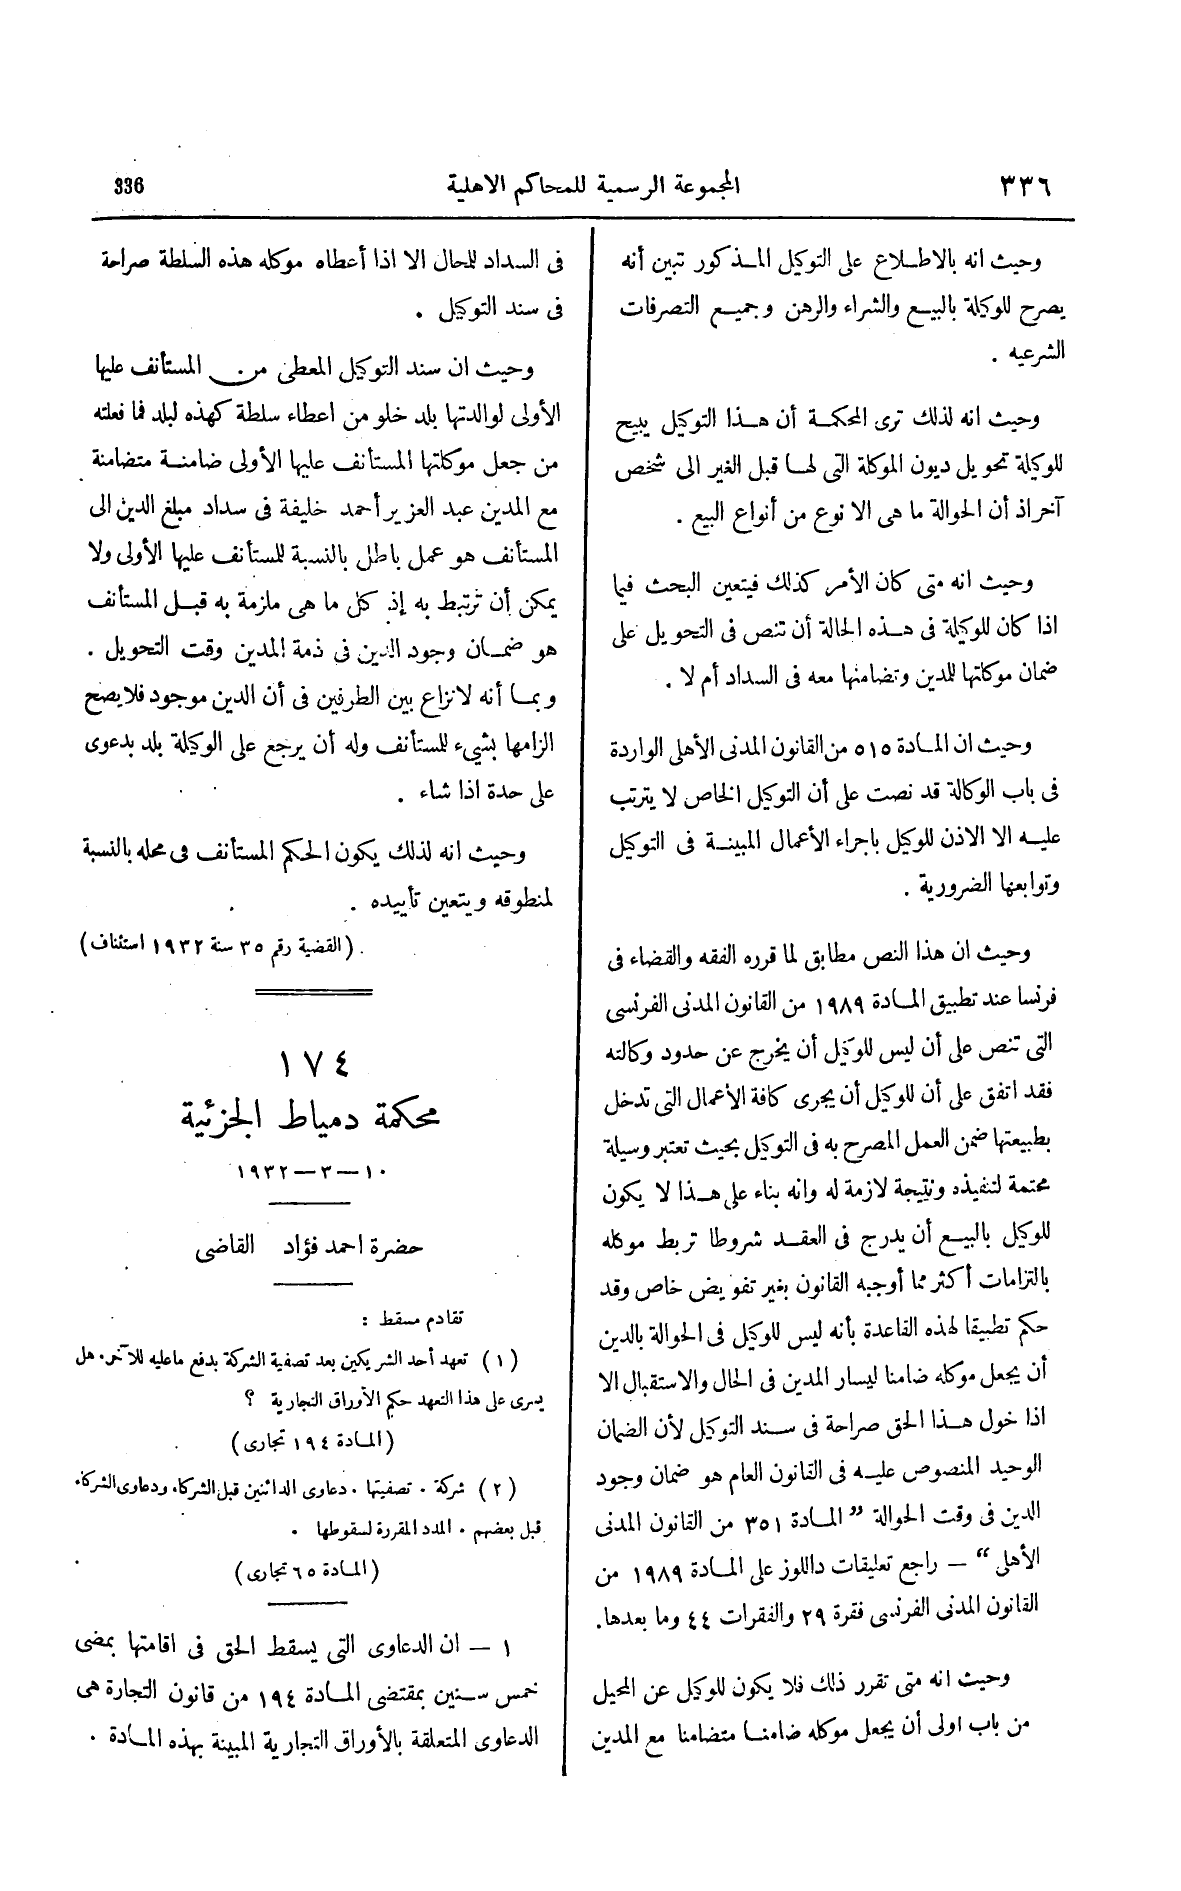 ٣٣٦
المجموعة الرسمية للمحاكم الاهلية
336
وحيث انه بالاطلاع على التوكيل المذكور تبين أنه
يصرح للوكيلة بالبيع والشراء والرهن وجميع التصرفات
الشرعيه .
وحيث انه لذلك ترى المحكمة أن هذا التوكيل يبيح
للوكيلة تحويل ديون الموكلة التى لها قبل الغير الى شخص
آخراذ أن الحوالة ما هى الا نوع من أنواع البيع .
وحيث انه متى كان الأمر كذلك فيتعين البحث فيما
اذا كان للوكيلة فى هذه الحالة أن تنص فى التحويل على
ضمان موكلتها للمدين وتضامنها معه فى السداد أم لا .
وحيث ان المادة ٥١٥ من القانون المدنى الأهلى الواردة
فى باب الوكالة قد نصت على أن التوكيل الخاص لا يترتب
عليه الا الاذن للوكيل باجراء الأعمال المبينة فى التوكيل
وتوابعها الضرورية .
وحيث ان هذا النص مطابق لما قرره الفقه والقضاء فى
فرنسا عند تطبيق المادة ١٩٨٩ من القانون المدنى الفرنسى
التى تنص على أن ليس للوكيل أن يخرج عن حدود وكالته
فقد اتفق على أن للوكيل أن يجرى كافة الأعمال التى تدخل
بطبيعتها ضمن العمل المصرح به فى التوكيل بحيث تعتبر وسيلة
محتمة لتنفيذه ونتيجة لازمة له وانه بناء على هذا لا يكون
للوكيل بالبيع أن يدرج فى العقد شروطا تربط موكله
بالتزامات أكثر مما أوجبه القانون بغير تفويض خاص وقد
حكم تطبيقا لهذه القاعدة بأنه ليس للوكيل فى الحوالة بالدين
أن يجعل موكله ضامنا ليسار المدين فى الحال والاستقبال الا
اذا خول هذا الحق صراحة فى سند التوكيل لأن الضمان
الوحيد المنصوص عليه فى القانون العام هو ضمان وجود
الدين فى وقت الحوالة ” المادة ٣٥١ من القانون المدنى
الأهلى “ — راجع تعليقات داللوز على المادة ١٩٨٩ من
القانون المدنى الفرنسى فقرة ٢٩ والفقرات ٤٤ وما بعدها.
وحيث انه متى تقرر ذلك فلا يكون للوكيل عن المحيل
من باب اولى أن يجعل موكله ضامنا متضامنا مع المدين
فى السداد للمحال الا اذا أعطاه موكله هذه السلطة صراحة
فى سند التوكيل .
وحيث ان سند التوكيل المعطى من المستأنف عليها
الأولى لوالدتها بلد خلو من اعطاء سلطة كهذه لبلد فما فعلته
من جعل موكلتها المستأنف عليها الأولى ضامنة متضامنة
مع المدين عبد العزيز أحمد خليفة فى سداد مبلغ الدين الى
المستأنف هو عمل باطل بالنسبة للمستأنف عليها الأولى ولا
يمكن أن ترتبط به إذ كل ما هى ملزمة به قبل المستأنف
هو ضمان وجود الدين فى ذمة المدين وقت التحويل .
وبما أنه لانزاع بين الطرفين فى أن الدين موجود فلا يصح
الزامها بشيء للمستأنف وله أن يرجع على الوكيلة بلد بدعوى
على حدة اذا شاء .
وحيث انه لذلك يكون الحكم المستأنف فى محله بالنسبة
لمنطوقه ويتعين تأييده .
(القضية رقم ٣٥ سنة ١٩٣٢ استئناف)
١٧٤
محكمة دمياط الجزئية
١٠—٣—١٩٣٢
حضرة احمد فؤاد القاضى
تقادم مسقط :
(١) تعهد أحد الشريكين بعد تصفية الشركة بدفع ماعليه للآخر. هل
يسرى على هذا التعهد حكم الأوراق التجارية ؟
(المادة ١٩٤ تجارى)
(٢) شركة . تصفيتها . دعاوى الدائنين قبل الشركاء ودعاوى الشركاء
قبل بعضهم . المدد المقررة لسقوطها .
(المادة ٦٥ تجارى)
١ — ان الدعاوى التى يسقط الحق فى اقامتها بمضى
خمس سنين بمقتضى المادة ١٩٤ من قانون التجارة هى
الدعاوى المتعلقة بالأوراق التجارية المبينة بهذه المادة .